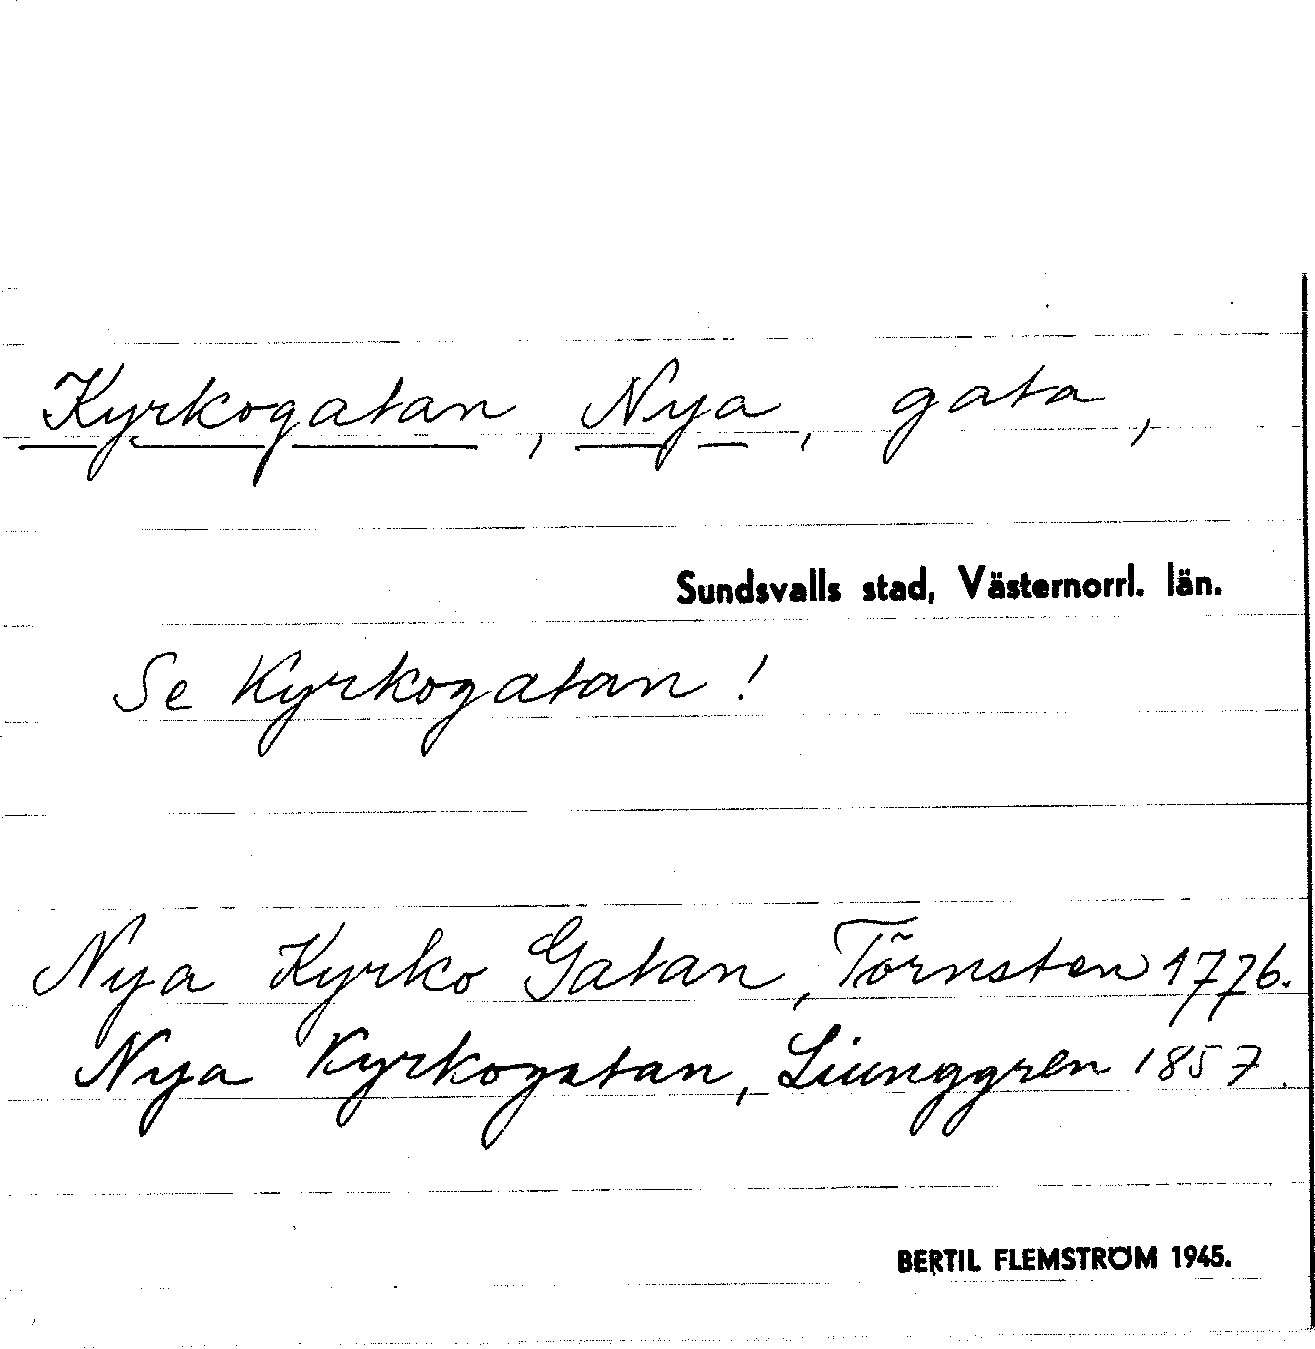 Kyrkogatan, Nya, gata,
Sundsvalls stad, Västernorrl. län.
Se Kyrkogatan!
Nya Kyrko Gatan, Törnsten 1776.
Nya Kyrkogatan, Liunggren 1857.
BERTIL FLEMSTRÖM 1945.